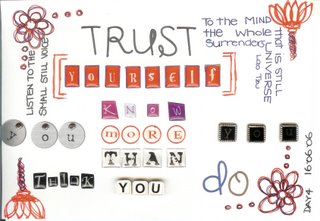 TRUST
[YOURSELF]
YOU KNOW YOU
MORE
THAN
YOU THINK YOU do
LISTEN TO THE
SMALL STILL VOICE
To the MIND
THAT IS STILL
the whole
UNIVERSE
Surrenders
Lao Tzu
DAY 4 16·06·06